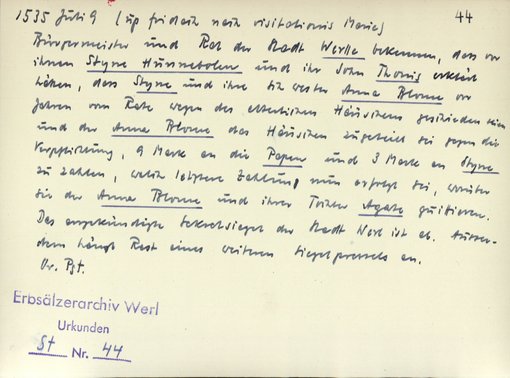 1535 Juli 9 (up fridach nach visitationis Marie) 44
Bürgermeister und Rat der Stadt Werlle bekennen, dass vor
ihnen Styne Hunnebolen und ihr Sohn Thonis erklärt
haben, dass Styne und ihre Schwester Anna Blome vor
Jahren vom Rate wegen des elterlichen Häuschens geschieden seien
und der Anna Blome das Häuschen zugeteilt sei gegen die
Verpflichtung, 9 Mark an die Papen und 3 Mark an Styne
zu zahlen, welch letztere Zahlung nun erfolgt sei, worüber
sie der Anna Blome und ihrer Tochter Agate quittieren.
Das angekündigte Sekretsiegel der Stadt Werl ist ab. Ausser-
dem hängt Rest eines weiteren Siegelpressels an.
Or. Pgt.
Erbsälzerarchiv Werl
Urkunden
St Nr. 44